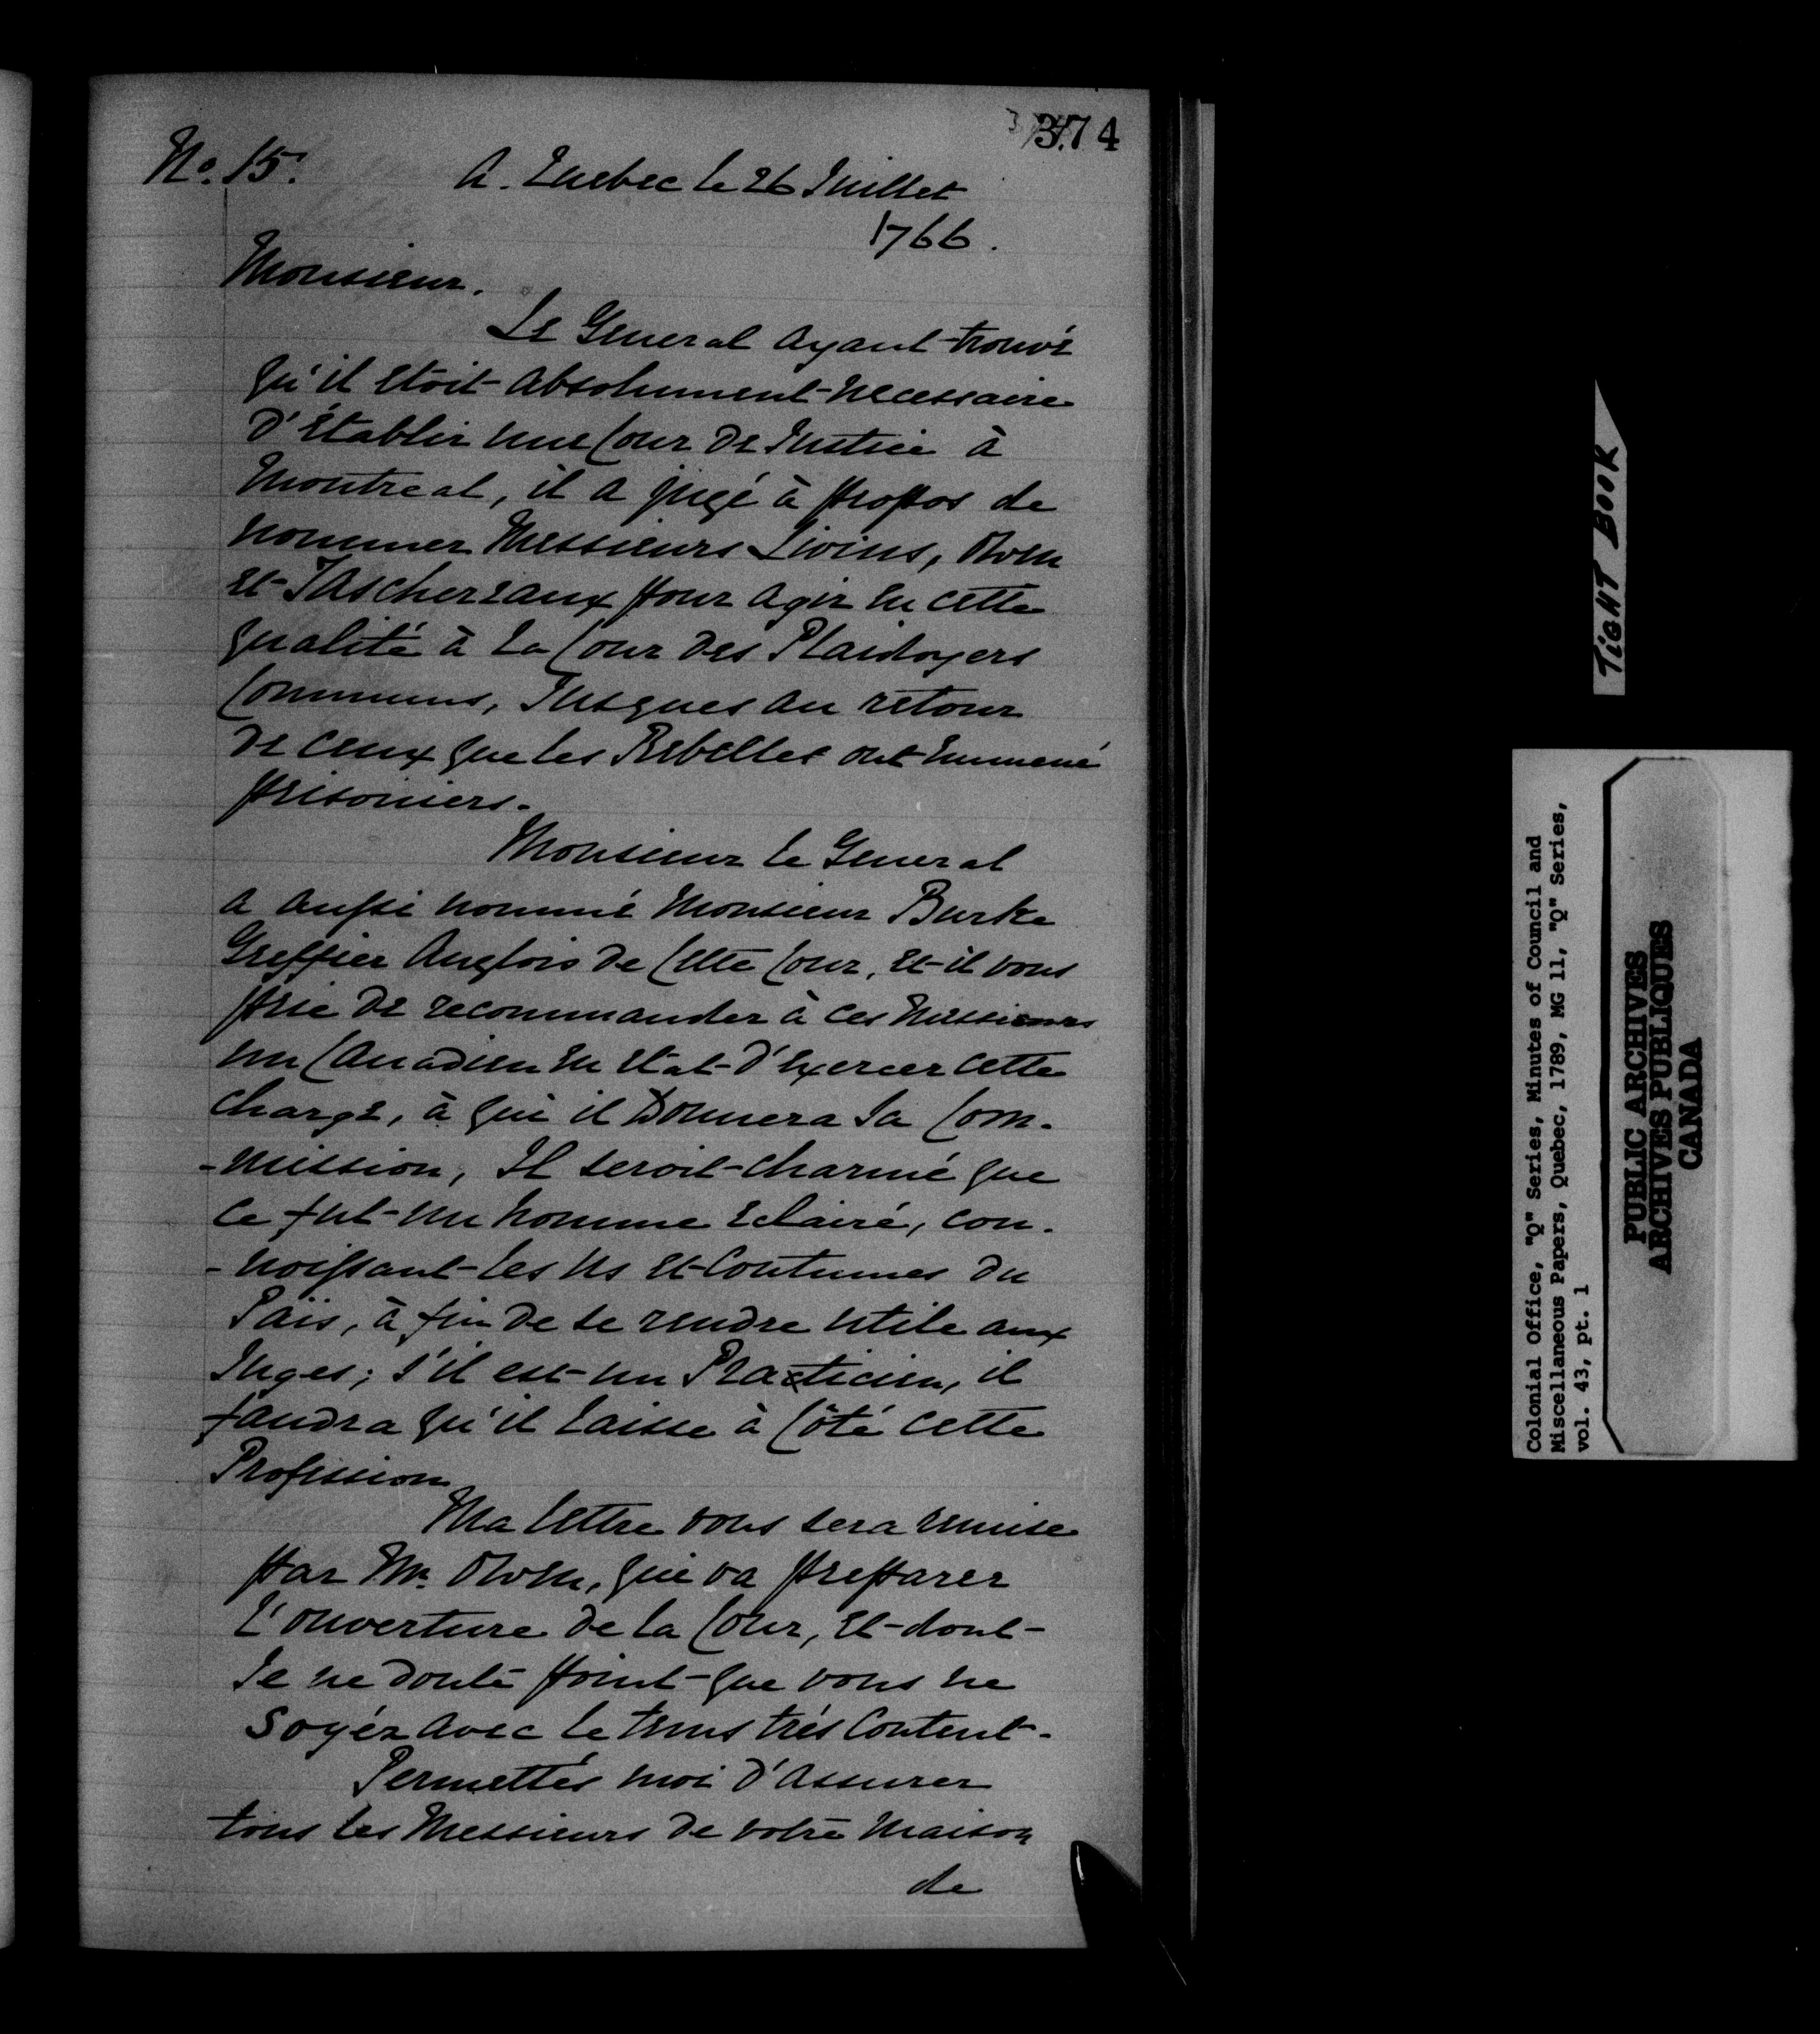 374
No. 15.
A. Quebec le 26 Juillet
1766.
Monsieur.
Le General ayant trouvé
qu'il etoit absolument necessaire
d'établir une Cour de Justice à
Montreal, il a jugé à propos de
nommer Messieurs Livius, Owen
et Taschereaux pour agir en cette
qualité à la Cour des Plaidoyers
Communs, Jusques au retour
de ceux que les Rebelles ont emmené
prisoniers.
Monsieur le General
a aussi nommé Monsieur Burke
Greffier Anglois de Cette Cour, et il vous
prie de recommander à ces Messieurs
un Canadien en etat d'exercer cette
charge, à qui il Donnera Sa Com-
-mission, Il seroit charmé que
ce fut un homme eclairé, con-
-noissant les us et Coutumes du
Païs, à fin de se rendre utile aux
Juges; s'il est un Practicien, il
faudra qu'il laisse à Côté cette
Profession
Ma lettre vous sera remise
par Mr. Owen, qui va preparer
l'ouverture de la Cour, et dont
Je ne doute point que vous ne
Soyéz avec le tems très Content.
Permettés moi d'assurer
tous les Messieurs de votre Maison
de
TIGHT BOOK
Colonial Office, "Q" Series, Minutes of Council and
Miscellaneous Papers, Quebec, 1789, MG 11, "Q" Series,
vol. 43, pt. 1
PUBLIC ARCHIVES
ARCHIVES PUBLIQUES
CANADA